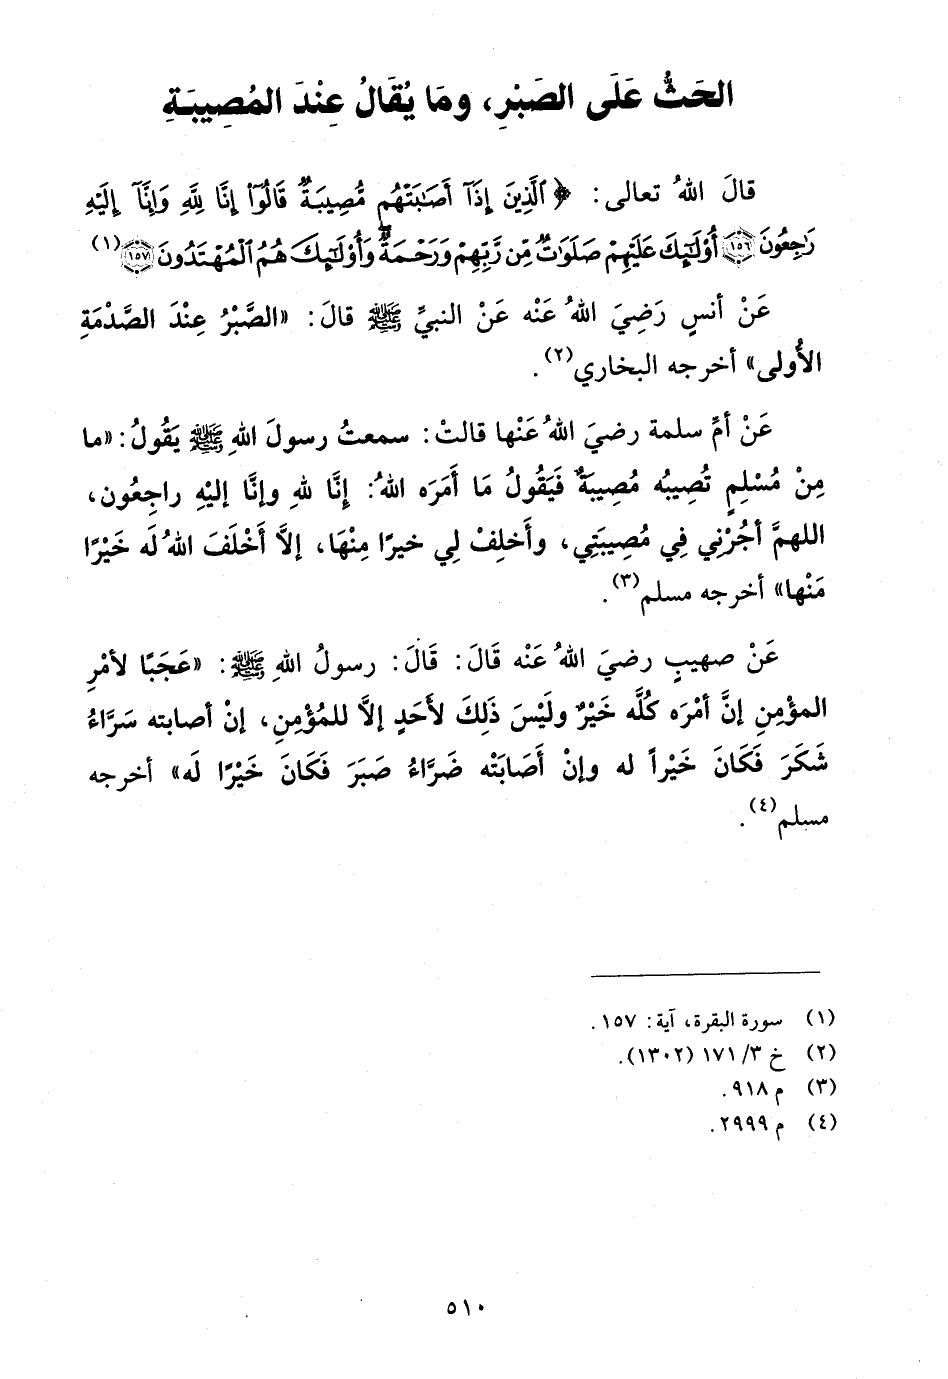 الحَثُّ عَلَى الصَبْرِ، ومَا يُقَالُ عِنْدَ المُصِيبَةِ
قالَ اللهُ تعالى: ﴿ٱلَّذِينَ إِذَآ أَصَٰبَتْهُم مُّصِيبَةٌ قَالُوٓا۟ إِنَّا لِلَّهِ وَإِنَّآ إِلَيْهِ
رَٰجِعُونَ ١٥٦ أُو۟لَٰٓئِكَ عَلَيْهِمْ صَلَوَٰتٌ مِّن رَّبِّهِمْ وَرَحْمَةٌ وَأُو۟لَٰٓئِكَ هُمُ ٱلْمُهْتَدُونَ ١٥٧(١)
عَنْ أنسٍ رَضِيَ اللهُ عَنْه عَنْ النبيِّ ﷺ قالَ: «الصَّبْرُ عِنْدَ الصَّدْمَةِ
الأُولى» أخرجه البخاري(٢).
عَنْ أمِّ سلمة رضيَ اللهُ عَنْها قالتْ: سمعتُ رسولَ اللهِ ﷺ يَقُولُ: «ما
مِنْ مُسْلِمٍ تُصِيبُه مُصِيبَةٌ فَيَقُولُ مَا أَمَرَه اللهُ: إِنَّا للهِ وإنَّا إليْهِ راجِعُون،
اللهمَّ أجُرْنِي فِي مُصِيبَتِي، وأَخلِفْ لِي خيرًا مِنْهَا، إلاَّ أَخْلَفَ اللهُ لَه خَيْرًا
مَنْها» أخرجه مسلم(٣).
عَنْ صهيبٍ رضيَ اللهُ عَنْه قَالَ: قَالَ: رسولُ اللهِ ﷺ: «عَجَبًا لأمْرِ
المؤْمِنِ إنَّ أمْرَه كُلَّه خَيْرٌ ولَيْسَ ذَلِكَ لأَحَدٍ إلاَّ للمُؤْمِنِ، إنْ أصابته سَرَّاءُ
شَكَرَ فَكَانَ خَيْراً له وإنْ أَصَابَتْه ضَرَّاءُ صَبَرَ فَكَانَ خَيْرًا لَه» أخرجه
مسلم(٤).
(١) سورة البقرة، آية: ١٥٧.
(٢) خ ٣/ ١٧١ (١٣٠٢).
(٣) م ٩١٨.
(٤) م ٢٩٩٩.
٥١٠